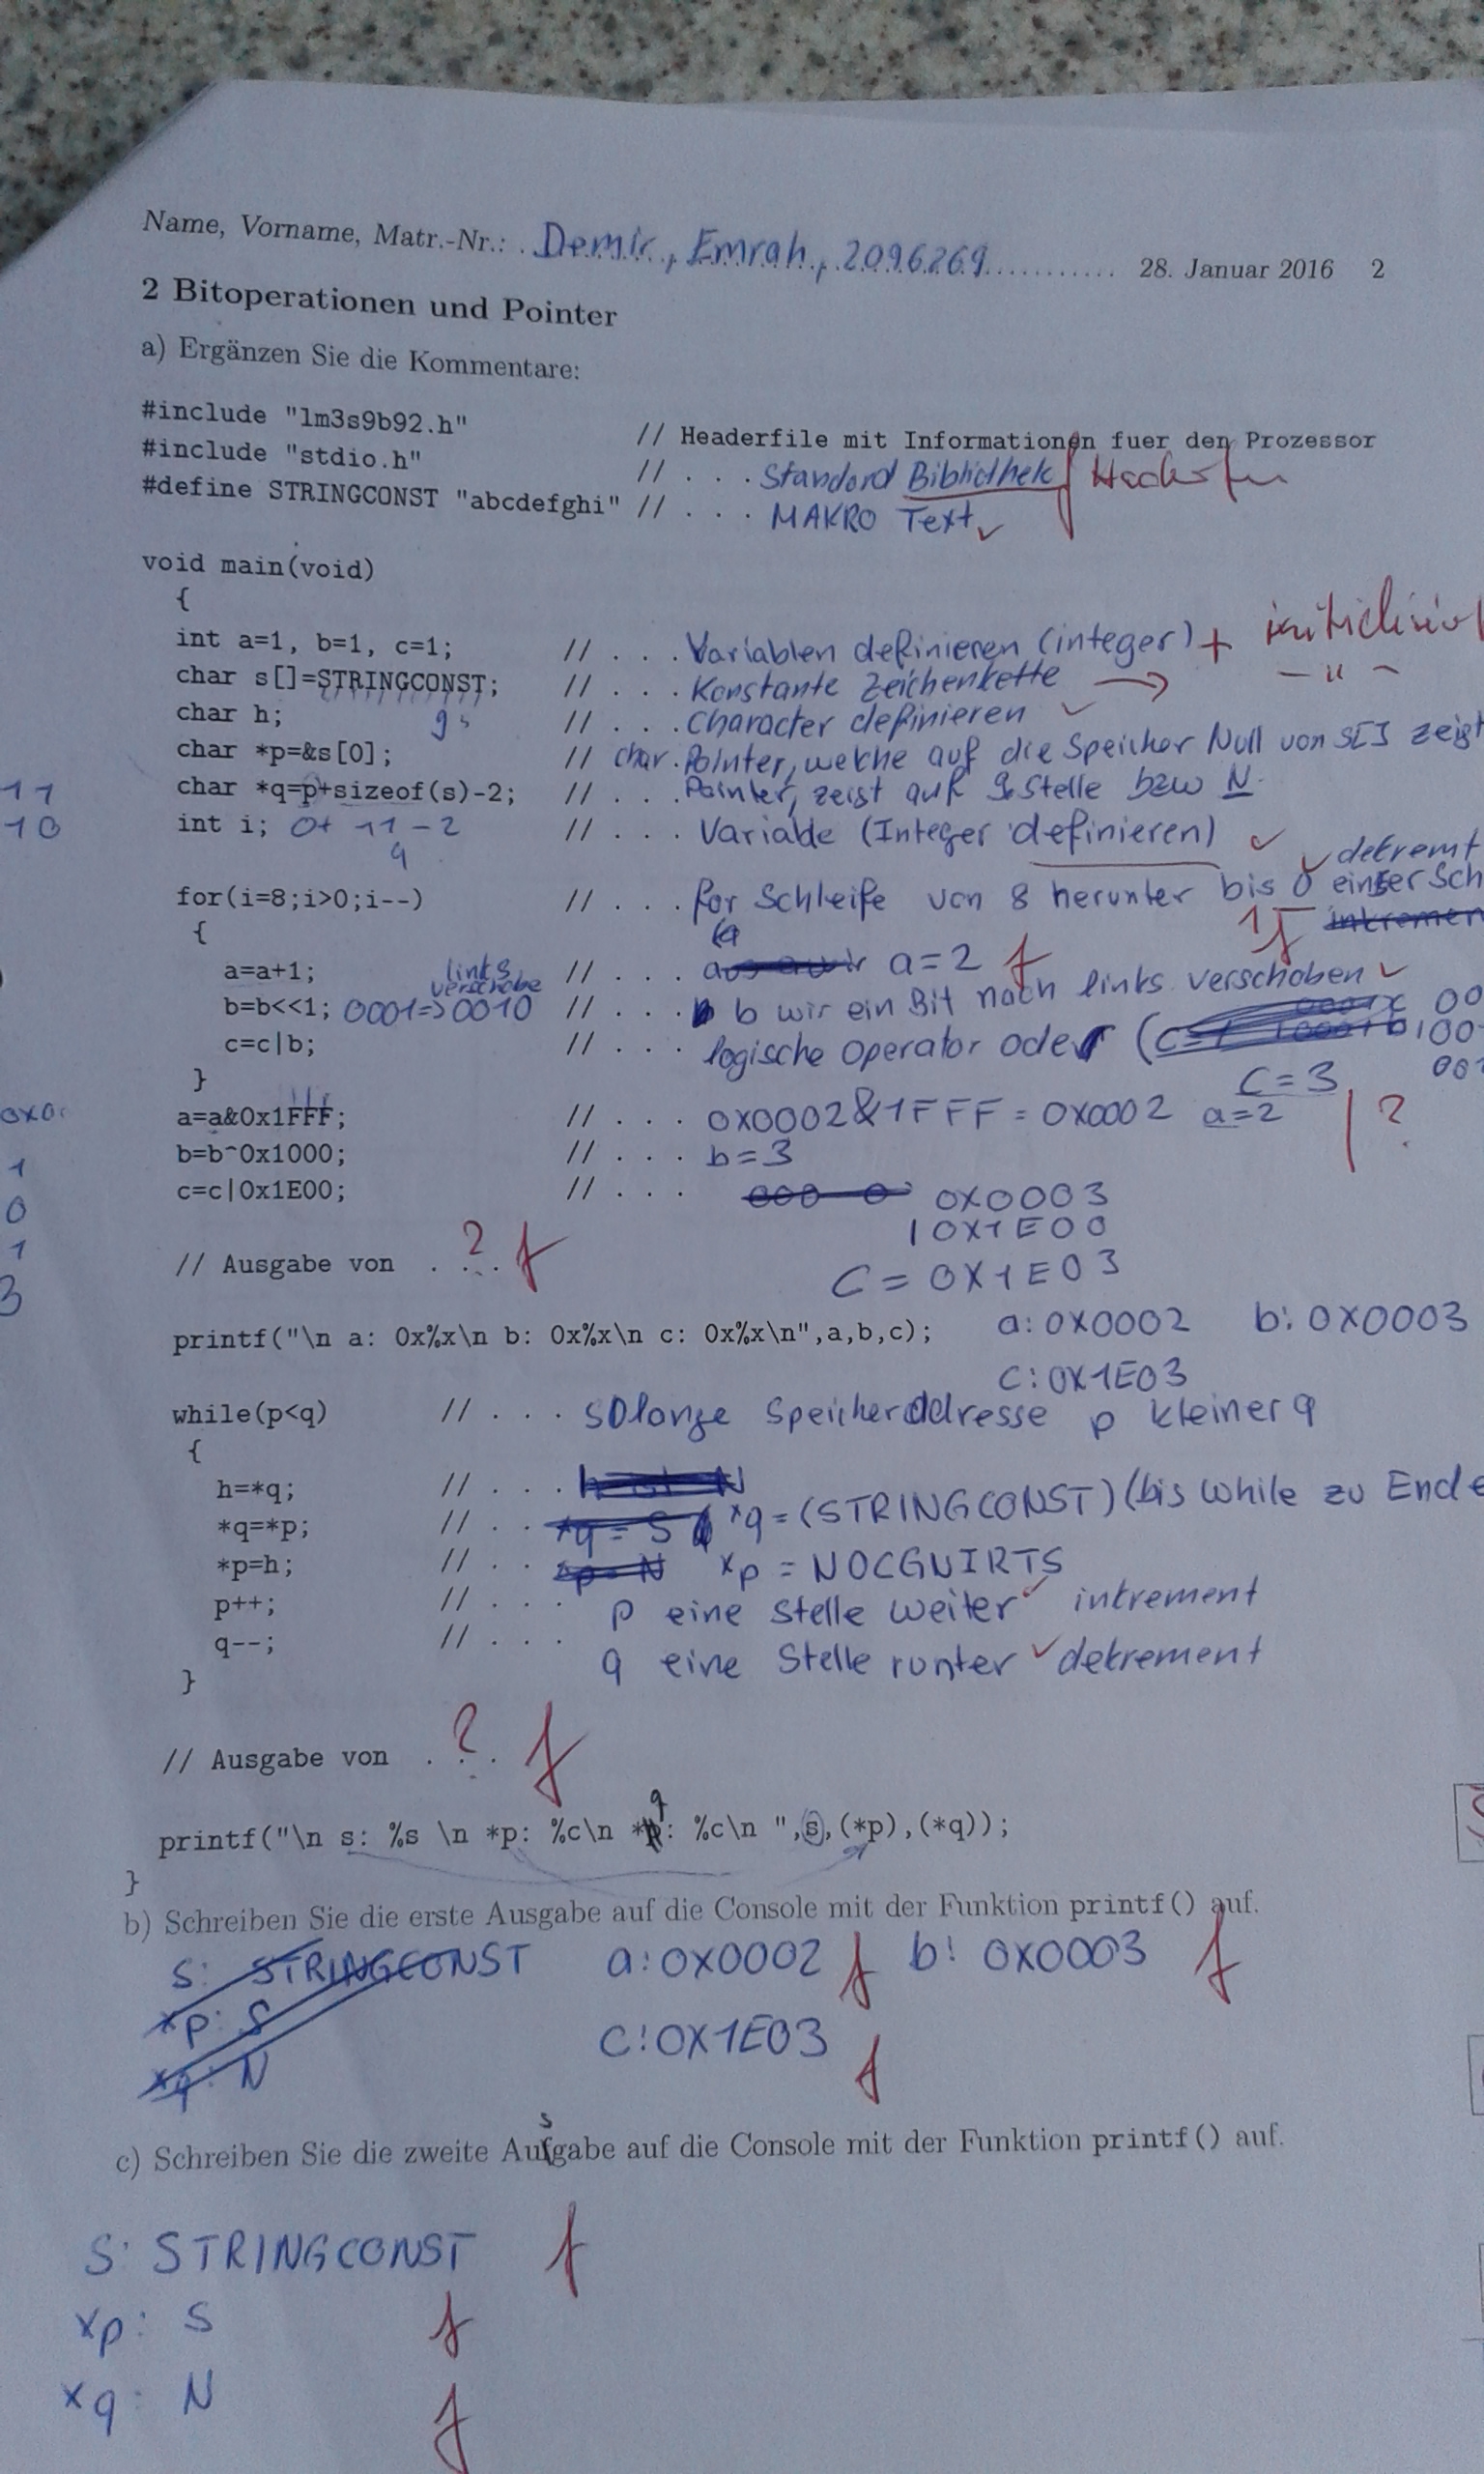 Name, Vorname, Matr.-Nr.: . Demir, Emrah, 2096269 ............ 28. Januar 2016 2
2 Bitoperationen und Pointer
a) Ergänzen Sie die Kommentare:
#include "lm3s9b92.h" // Headerfile mit Informationen fuer den Prozessor
#include "stdio.h" // . . . Standard Bibliothek f
#define STRINGCONST "abcdefghi" // . . . MAKRO Text ✓
void main(void)
{
int a=1, b=1, c=1; // . . . Variablen definieren (integer) +
char s[]=STRINGCONST; // . . . Konstante Zeichenkette → – " –
char h; 9 // . . . Character definieren ✓
char *p=&s[0]; // char . Pointer, welche auf die Speicher Null von s[] zeigt
11 char *q=p+sizeof(s)-2; // . . . Pointer, zeist auf 9. Stelle bzw N.
10 int i; 0+ 11-2 // . . . Variable (Integer definieren) ✓
9 ✓ dekremt
for(i=8;i>0;i--) // . . . for Schleife von 8 herunter bis 0 einser Sch
{ 1 f
a=a+1; links verschobe // . . . a=2 f
b=b<<1; 0001=>0010 // . . . b wir ein Bit nach links verschoben ✓ 00
c=c|b; // . . . logische Operator oder (
} C=3
0x0 a=a&0x1FFF; // . . . 0x0002&1FFF = 0x0002 a=2 ?
1 b=b^0x1000; // . . . b=3
0 c=c|0x1E00; // . . . 0x0003
1 | 0x1E00
3 // Ausgabe von . . . ? f C = 0x1E03
printf("\n a: 0x%x\n b: 0x%x\n c: 0x%x\n",a,b,c); a: 0x0002 b: 0x0003
C: 0x1E03
while(p<q) // . . . Solange Speicheraddresse p kleiner q
{
h=*q; // . . .
*q=*p; // . . *q = (STRINGCONST) (bis While zu Ende
*p=h; // . . *p = NOCGNIRTS
p++; // . . . p eine stelle weiter ✓ inkrement
q--; // . . . q eine Stelle runter ✓ dekrement
}
// Ausgabe von . . . ? f
printf("\n s: %s \n *p: %c\n *q: %c\n ",s,(*p),(*q));
}
b) Schreiben Sie die erste Ausgabe auf die Console mit der Funktion printf() auf.
S: STRINGCONST a: 0x0002 f b: 0x0003 f
*p: S
C: 0x1E03 f
*q: N
c) Schreiben Sie die zweite Ausgabe auf die Console mit der Funktion printf() auf.
S: STRINGCONST f
*p: S f
*q: N f